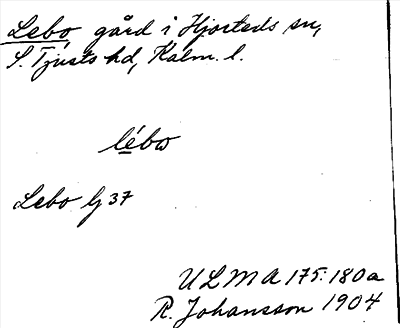 Lebo, gård i Hjorteds sn,
S. Tjusts hd, Kalm. l.
lébω
Lebo Lj 37
ULMA 175:180a
R. Johansson 1904